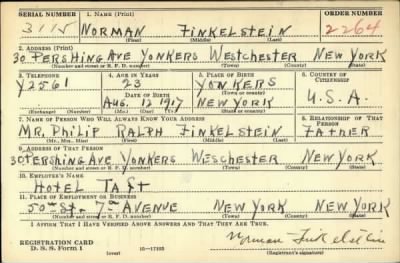 SERIAL NUMBER 1. NAME (Print) ORDER NUMBER
3115 NORMAN FINKELSTEIN 2264
(First) (Middle) (Last)
2. ADDRESS (Print)
30 PERSHING AVE YONKERS WESTCHESTER NEW YORK
(Number and street or R. F. D. number) (Town) (County) (State)
3. TELEPHONE 4. AGE IN YEARS 5. PLACE OF BIRTH 6. COUNTRY OF CITIZENSHIP
Y2561 23 YONKERS
DATE OF BIRTH (Town or county)
AUG. 12 1917 NEW YORK U.S.A.
(Exchange) (Number) (Mo.) (Day) (Yr.) (State or country)
7. NAME OF PERSON WHO WILL ALWAYS KNOW YOUR ADDRESS 8. RELATIONSHIP OF THAT PERSON
MR. PHILIP RALPH FINKELSTEIN FATHER
(Mr., Mrs., Miss) (First) (Middle) (Last)
9. ADDRESS OF THAT PERSON
30 PERSHING AVE YONKERS WESCHESTER NEW YORK
(Number and street or R. F. D. number) (Town) (County) (State)
10. EMPLOYER'S NAME
HOTEL TAFT
11. PLACE OF EMPLOYMENT OR BUSINESS
50TH ST. 7TH AVENUE NEW YORK NEW YORK
(Number and street or R. F. D. number) (Town) (County) (State)
I AFFIRM THAT I HAVE VERIFIED ABOVE ANSWERS AND THAT THEY ARE TRUE.
REGISTRATION CARD
D. S. S. FORM 1 16—17105 Norman Finkelstein
(Registrant's signature)